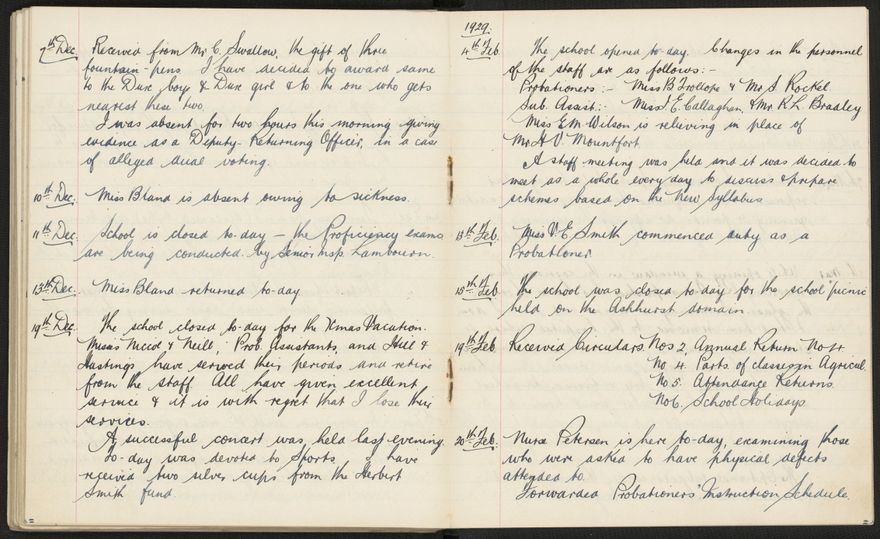 7th Dec. Received from Mr. C. Swallow, the gift of three
fountain-pens. I have decided to award same
to the Dux boy & Dux girl & to the one who gets
nearest these two.
I was absent for two hours this morning giving
evidence as a Deputy-Returning Officer, in a case
of alleged dual voting.
10th Dec. Miss Bland is absent owing to sickness.
11th Dec. School is closed to-day – the Proficiency exams
are being conducted by Senior Insp. Lambourn.
13th Dec. Miss Bland returned to-day
19th Dec. The school closed to-day for the Xmas Vacation.
Misses & Neill, Prob. Assistants, and Hill &
Hastings have served their periods and retire
from the staff. All have given excellent
service & it is with regret that I lose their
services.
A successful concert was held last evening.
To-day was devoted to Sports. I have
received two silver cups from the Herbert
Smith fund.
1929.
4th Feb. The school opened to-day. Changes in the personnel
of the staff are as follows:-
Probationers :- Miss B Trollope & Mr S. Rockel.
Sub. Assist:- Miss E. Callaghan & Mr K L Bradley
Miss E M Wilson is relieving in place of
Mr H V Mountfort
A staff meeting was held and it was decided to
meet as a whole every day to discuss & prepare
schemes based on the New Syllabus
13th Feb. Miss V. E. Smith commenced duty as a
Probationer.
15th Feb The school was closed to-day for the school picnic
held on the Ashhurst domain.
19th Feb. Received Circulars. Nos 2, Annual Return No 4
No 4. Parts. of classes in Agricul.
No 5. Attendance Returns
No 6. School Holidays
20th Feb. Nurse Petersen is here to-day, examining those
who were asked to have physical defects
attended to.
Forwarded Probationers' Instruction Schedule.